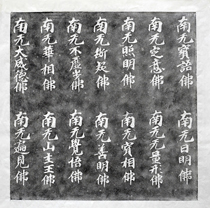 南无寶語佛 南无日明佛
南无定意佛 南无无量形佛
南无照明佛 南无寶相佛
南无 佛 南无善明佛
南无不虛 佛 南无覺悟佛
南无華相佛 南无山主王佛
南无大威德佛 南无遍見佛